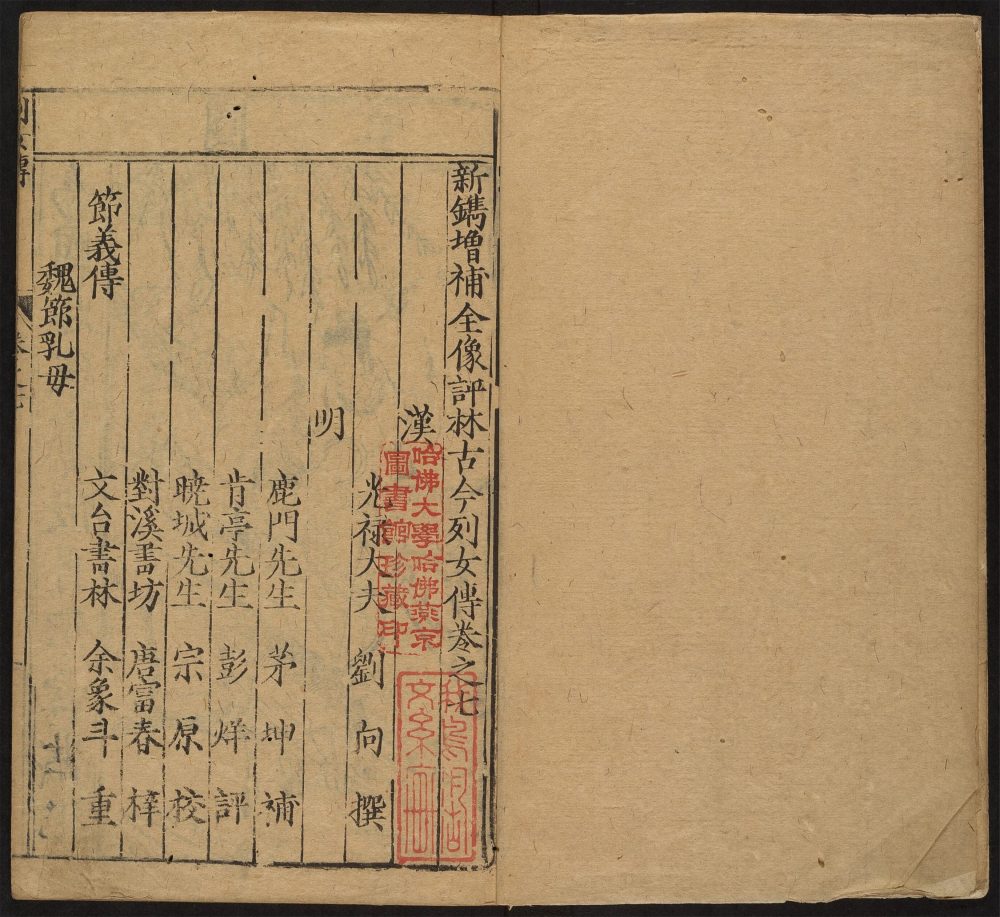 新鐫增補全像評林古今列女傳卷之七
漢
光祿大夫 劉向 撰
明
鹿門先生 茅坤 補
肯亭先生 彭烊 評
曉城先生 宗原 校
對溪書坊 唐富春 梓
文台書林 余象斗 重
節義傳
魏節乳母
哈佛大學哈佛燕京
圖書館珍藏印